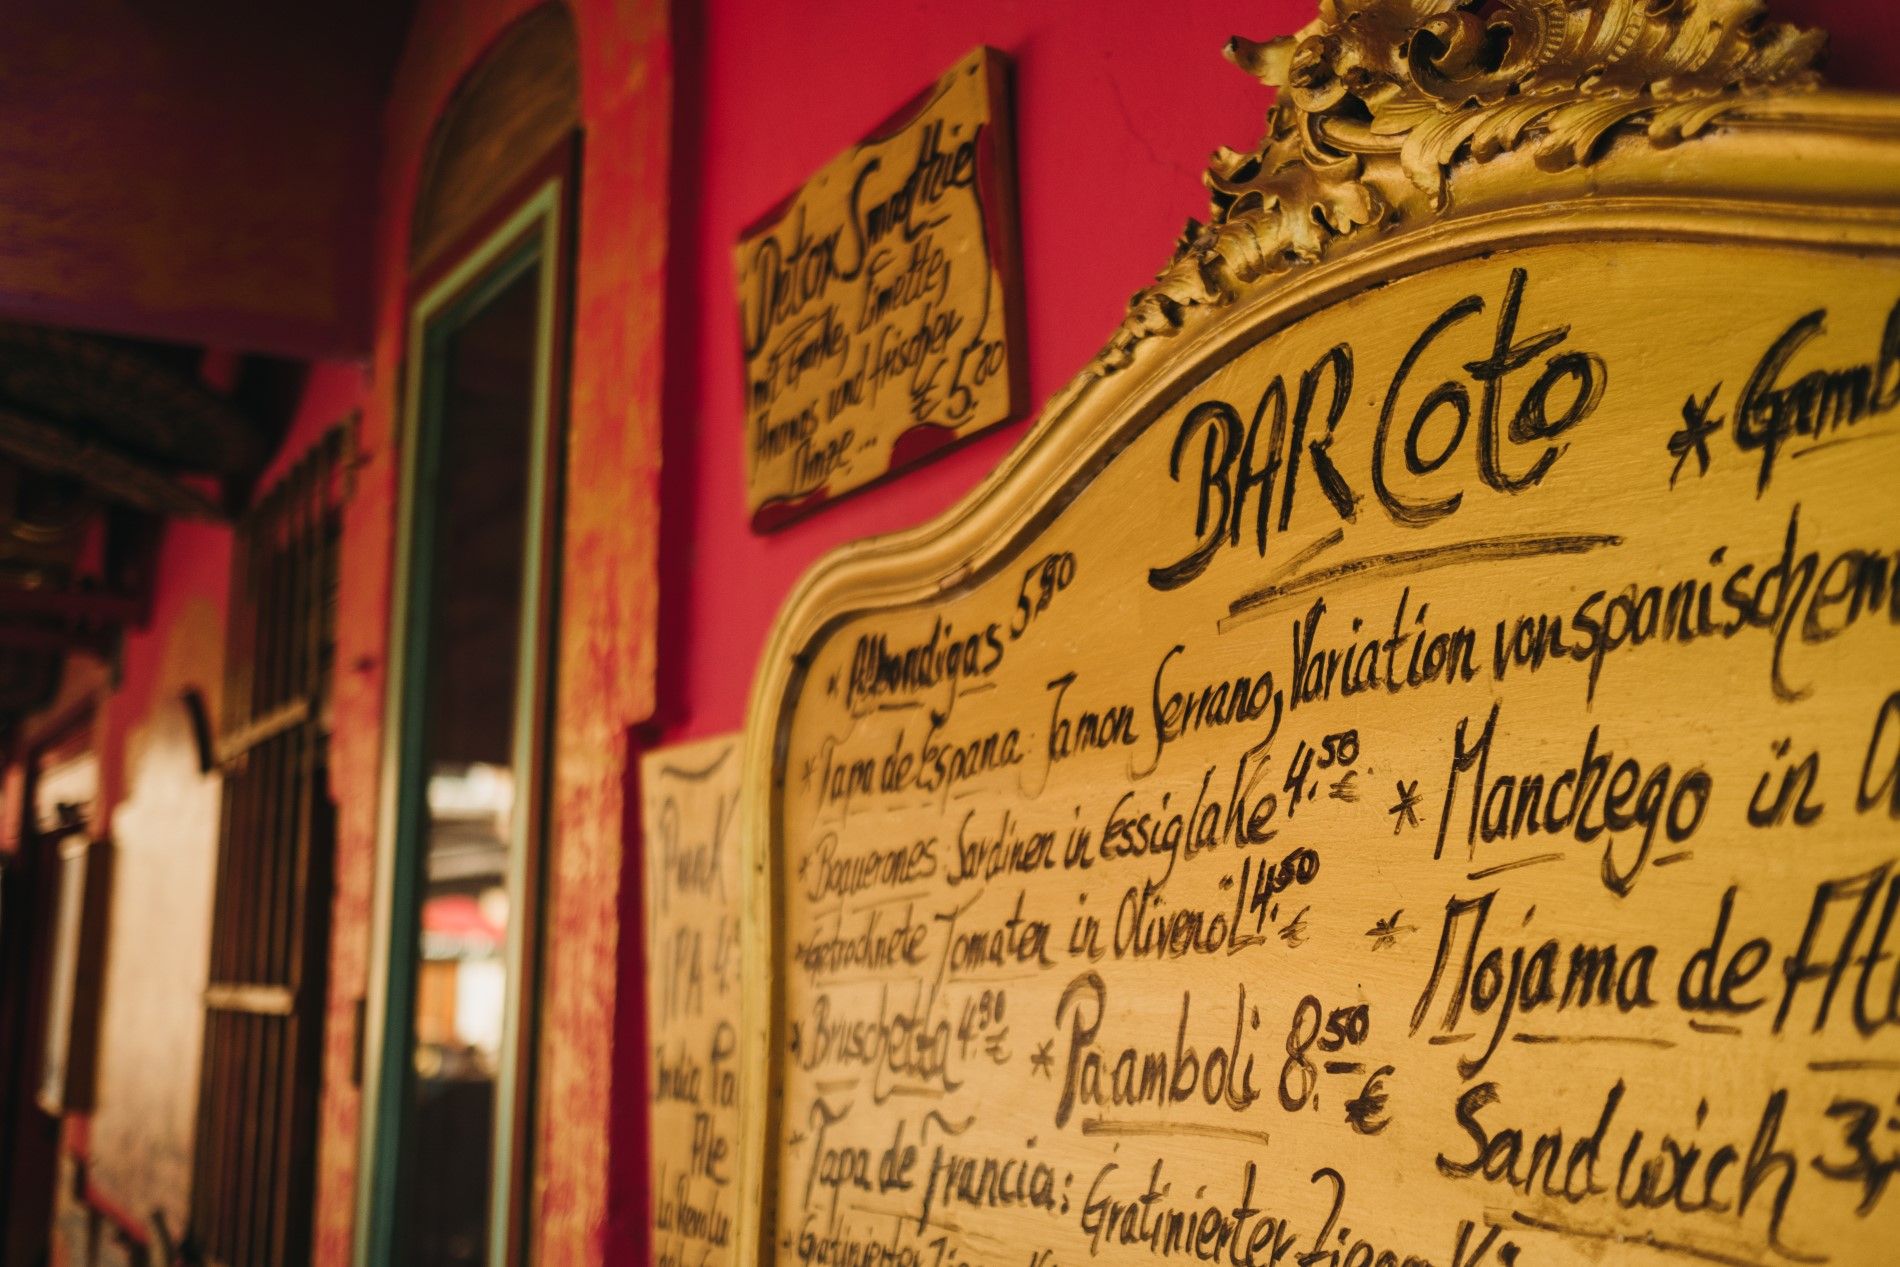 Detox Smothie
mit Gurke, Limette,
Ananas und frischer
Minze...
€ 5.80
BAR Coto
* Albondigas 5,90
* Tapa de Espana: Jamon Serrano, Variation von spanischem
* Boquerones: Sardinen in Essiglake 4.50 €
* Getrocknete Tomaten in Olivenöl 4.50 €
* Bruschetta 4.90 €
* Paamboli 8.50 €
* Tapa de Francia: Gratinierter
* Manchego in
* Mojama de
Sandwich 3,
Punk
IPA 4.
India Pa
Ale